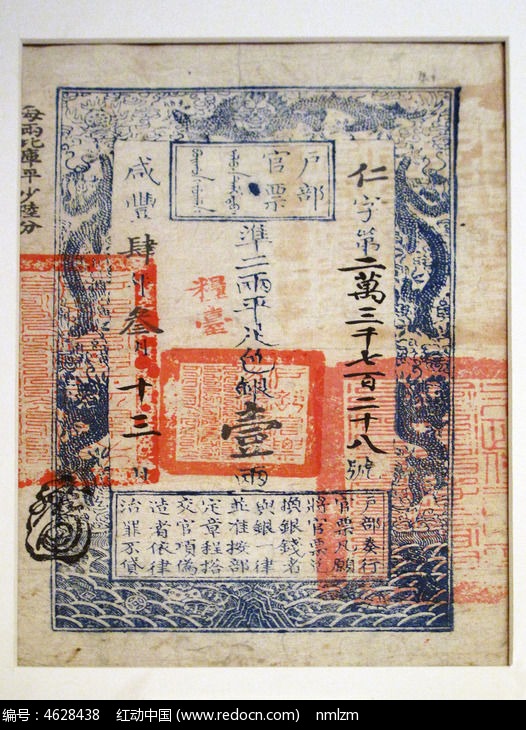 戶部
官票
仁字第二萬三千七百二十八號
準二兩平足色銀壹兩
糧臺
咸豐肆年叁月十三日
每兩比庫平少陸分
戶部奏行
官票凡願
將官票兌
換銀錢者
與銀一律
並准按部
定章程搭
交官項偽
造者依律
治罪不貸
编号：4628438 红动中国 (www.redocn.com) nmlzm